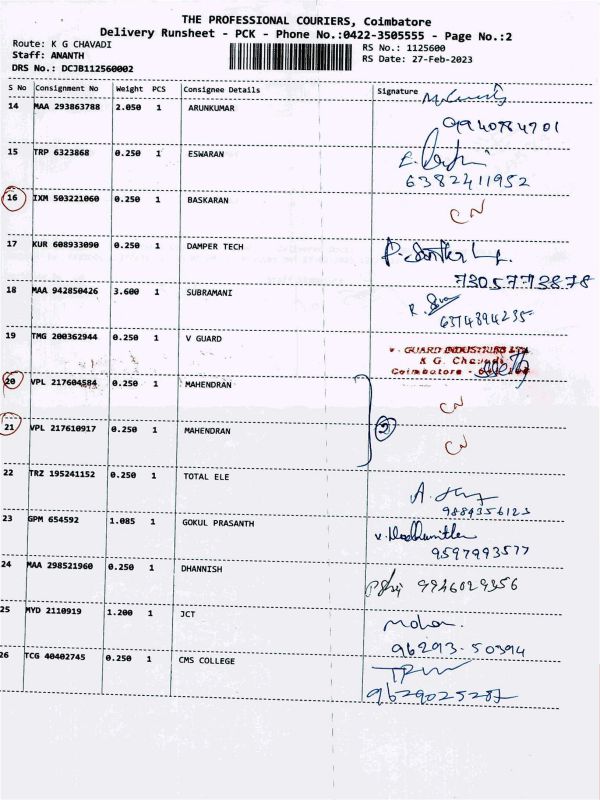 THE PROFESSIONAL COURIERS, Coimbatore
Delivery Runsheet - PCK - Phone No.:0422-3505555 - Page No.:2
Route: K G CHAVADI
RS No.: 1125600
Staff: ANANTH
RS Date: 27-Feb-2023
DRS No.: DCJB112560002
S No Consignment No Weight PCS Consignee Details Signature
14 MAA 293863788 2.050 1 ARUNKUMAR
9940784701
15 TRP 6323868 0.250 1 ESWARAN
6382411952
16 IXM 503221060 0.250 1 BASKARAN CN
17 KUR 608933090 0.250 1 DAMPER TECH
7305773878
18 MAA 942850426 3.600 1 SUBRAMANI
6374894235
19 TMG 200362944 0.250 1 V GUARD
V - GUARD INDUSTRIES LTD
K G. Chavadi
Coimbatore -
20 VPL 217604584 0.250 1 MAHENDRAN CN
21 VPL 217610917 0.250 1 MAHENDRAN 2 CN
22 TRZ 195241152 0.250 1 TOTAL ELE
9884356123
23 GPM 654592 1.085 1 GOKUL PRASANTH
9597993577
24 MAA 298521960 0.250 1 DHANNISH 9946029356
25 MYD 2110919 1.200 1 JCT
Mohan
96293-50394
26 TCG 40402745 0.250 1 CMS COLLEGE
9629025287